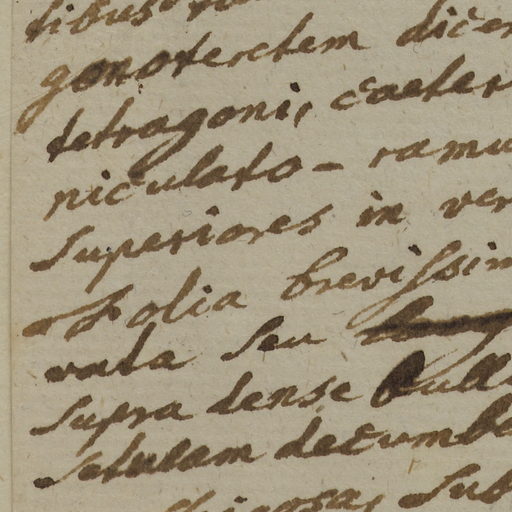 gonoteretem dicer
tetragoni, caeter
niculato- ramu
superiores in ver
Folia brevissim
vata seu
supra dense bull
setulam decumbe
sub